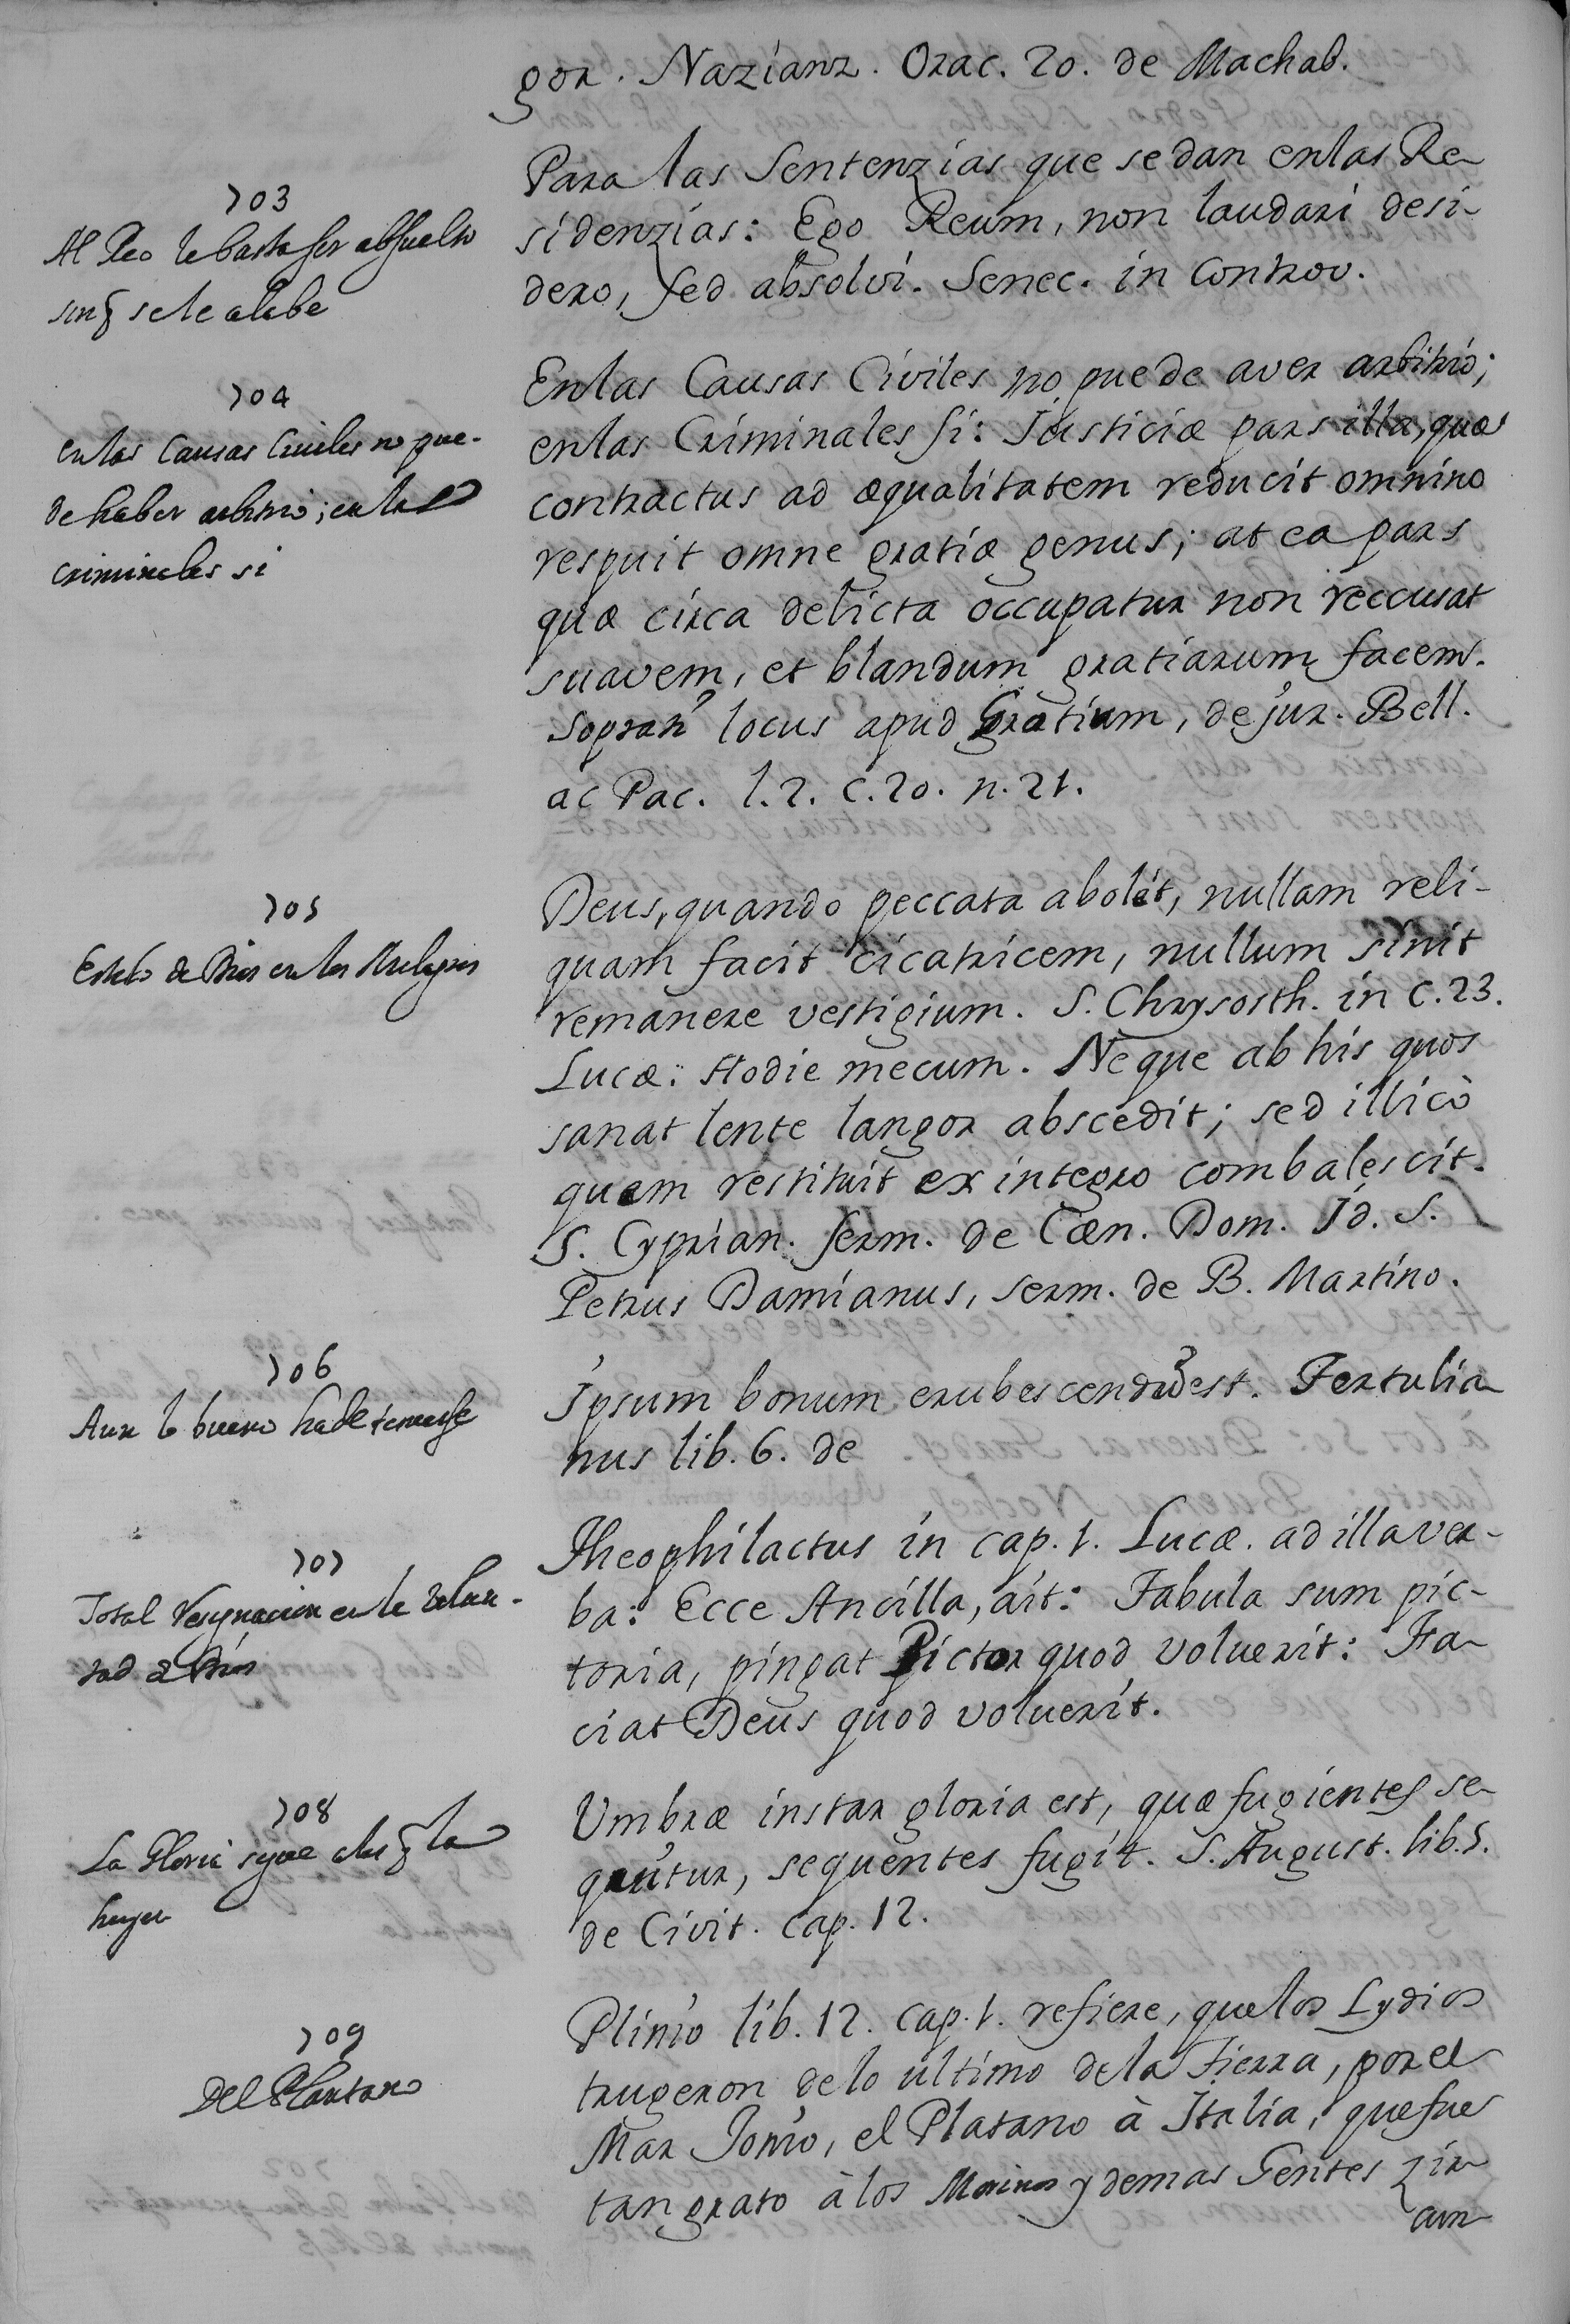 gor. Nazianz. Orac. 20. de Machab.
703
Al Reo le basta ser absuelto
sin q se le alabe
Para las Sentenzias que se dan en las Re-
sidenzias: Ego Reum, non laudari desi-
dero, sed absolvi. Senec. in Controv.
704
en las Causas Civiles no pue-
de haber arbitrio; en las
criminales si
En las Causas Civiles no puede aver arbitrio;
en las Criminales si: Justiciæ pars illa, quæ
contractus ad æqualitatem reducit omnino
respuit omne gratiæ genus; at ea pars
quæ circa delicta occupatur non reccusat
suavem, et blandum gratiarum facem.
Sopran locus apud Gratium, de jur. Bell.
ac Pac. l. 2. c. 20. n. 21.
705
Estilo de Dios en los Milagros
Deus, quando peccata abolet, nullam reli-
quam facit cicatricem, nullum sinit
remanere vestigium. S. Chrysosth. in c. 23.
Lucæ: Hodie mecum. Neque ab his quos
sanat lente langor abscedit; sed illicò
quem restituit ex integro combalescit.
S. Cyprian. serm. de Cæn. Dom. Id. S.
Petrus Damianus, serm. de B. Martino.
706
Aun lo bueno ha de temerse
Ipsum bonum erubescendũ est. Tertulia
nus lib. 6. de
707
Total resignacion en la volun-
tad de Dios
Theophilactus in cap. 1. Lucæ. ad illa ver-
ba: Ecce Ancilla, ait: Tabula sum pic-
toria, pingat Pictor quod voluerit: Fa-
ciat Deus quod voluerit.
708
La Gloria sigue a los q la
huyen
Umbræ instar gloria est, quæ fugientes se-
quũtur, sequentes fugit. S. August. lib. 5.
de Civit. cap. 12.
709
Del Plantano
Plinio lib. 12. cap. 1. refiere, que los Lydios
trugeron de lo ultimo de la Tierra, por el
Mar Jonio, el Platano à Italia, que fue
tan grato à los Morinos y demas Gentes zir
cum